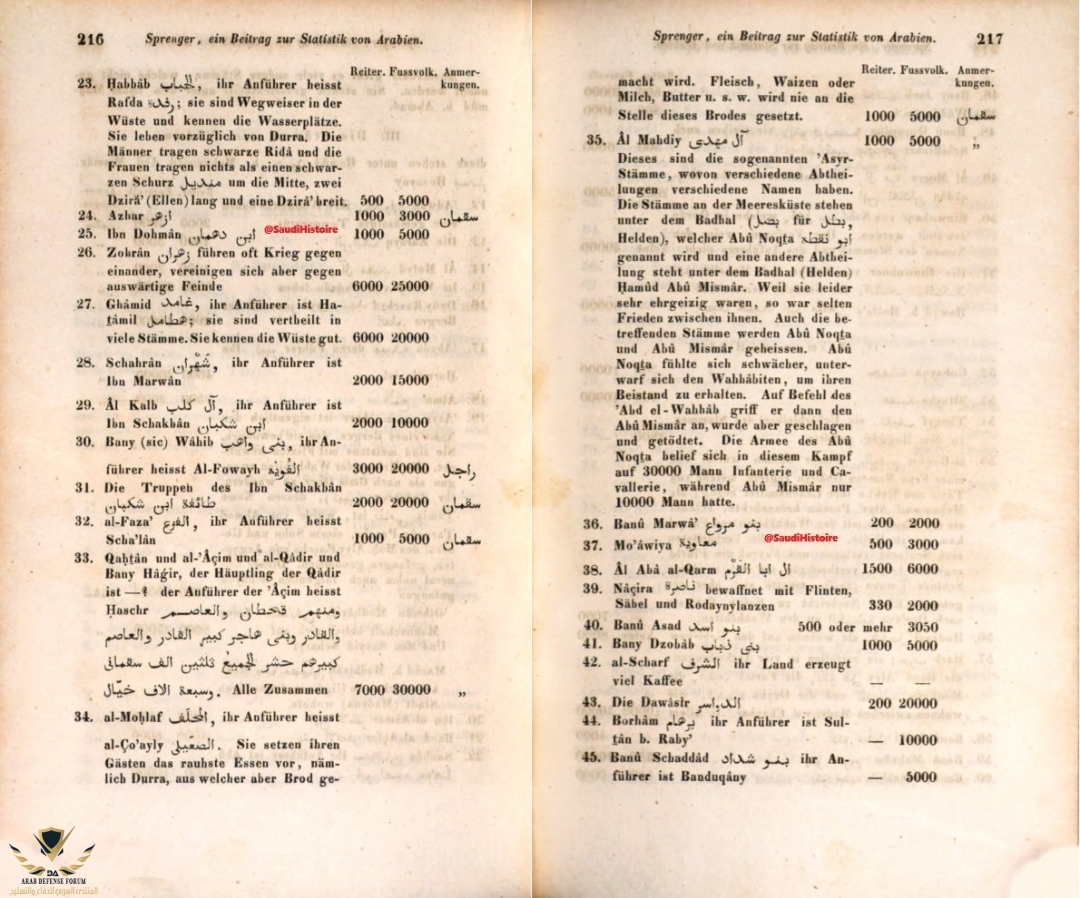 216 Sprenger, ein Beitrag zur Statistik von Arabien.
Reiter. Fussvolk. Anmer-
kungen.
23. Ḥabbâb الحباب, ihr Anführer heisst
Rafda رفدة; sie sind Wegweiser in der
Wüste und kennen die Wasserplätze.
Sie leben vorzüglich von Durra. Die
Männer tragen schwarze Ridâ und die
Frauen tragen nichts als einen schwar-
zen Schurz منديل um die Mitte, zwei
Dzirâ' (Ellen) lang und eine Dzirâ' breit. 500 5000
24. Azhar ازهر 1000 3000 سقمان
25. Ibn Dohmân ابن دهمان @SaudiHistoire 1000 5000
26. Zohrân زهران führen oft Krieg gegen
einander, vereinigen sich aber gegen
auswärtige Feinde 6000 25000
27. Ghâmid غامد, ihr Anführer ist Ha-
ṭâmil هطامل; sie sind vertheilt in
viele Stämme. Sie kennen die Wüste gut. 6000 20000
28. Schahrân شَهْران, ihr Anführer ist
Ibn Marwân 2000 15000
29. Âl Kalb آل كلب, ihr Anführer ist
Ibn Schakbân ابن شكبان 2000 10000
30. Bany (sic) Wâhib بنى واهب, ihr An-
führer heisst Al-Fowayh الفُوَيْه 3000 20000 راجل
31. Die Truppen des Ibn Schakbân
طائفة ابن شكبان 2000 20000 سقمان
32. al-Faza' الفزع, ihr Anführer heisst
Scha'lân 1000 5000 سقمان
33. Qaḥtân und al-'Âçim und al-Qâdir und
Bany Hâǵir, der Häuptling der Qâdir
ist —? der Anführer der 'Âçim heisst
Ḥaschr ومنهم قحطان والعاصم
والقادر وبنى هاجر كبير القادر والعاصم
كبيرهم حشر الجميع ثلثين الف سقمانى
وسبعة الاف خيّال. Alle Zusammen 7000 30000 „
34. al-Moḥlaf المحلّف, ihr Anführer heisst
al-Ço'ayly الصُعَيْلى. Sie setzen ihren
Gästen das rauhste Essen vor, näm-
lich Durra, aus welcher aber Brod ge-
Sprenger, ein Beitrag zur Statistik von Arabien. 217
Reiter. Fussvolk. Anmer-
kungen.
macht wird. Fleisch, Waizen oder
Milch, Butter u. s. w. wird nie an die
Stelle dieses Brodes gesetzt. 1000 5000 سقمان
35. Âl Mahdiy آل مهدى 1000 5000 „
Dieses sind die sogenannten 'Asyr-
Stämme, wovon verschiedene Abthei-
lungen verschiedene Namen haben.
Die Stämme an der Meeresküste stehen
unter dem Badhal (بضل für بطل,
Helden), welcher Abû Noqṭa ابو نقطة
genannt wird und eine andere Abthei-
lung steht unter dem Badhal (Helden)
Ḥamûd Abû Mismâr. Weil sie leider
sehr ehrgeizig waren, so war selten
Frieden zwischen ihnen. Auch die be-
treffenden Stämme werden Abû Noqṭa
und Abû Mismâr geheissen. Abû
Noqṭa fühlte sich schwächer, unter-
warf sich den Wahhâbiten, um ihren
Beistand zu erhalten. Auf Befehl des
'Abd el-Wahhâb griff er dann den
Abû Mismâr an, wurde aber geschlagen
und getödtet. Die Armee des Abû
Noqṭa belief sich in diesem Kampf
auf 30000 Mann Infanterie und Ca-
vallerie, während Abû Mismâr nur
10000 Mann hatte.
36. Banû Marwâ' بنو مرواع 200 2000
37. Mo'âwiya معاوية @SaudiHistoire 500 3000
38. Âl Abâ al-Qarm ال ابا القَرْم 1500 6000
39. Nâçira ناصرة bewaffnet mit Flinten,
Säbel und Rodaynylanzen 330 2000
40. Banû Asad بنو اسد 500 oder mehr 3050
41. Bany Dzobâb بنى ذباب 1000 5000
42. al-Scharf الشرف ihr Land erzeugt
viel Kaffee — —
43. Die Dawâsir الدواسر 200 20000
44. Borhâm برهام ihr Anführer ist Sul-
ṭân b. Raby' — 10000
45. Banû Schaddâd بنو شداد ihr An-
führer ist Banduqâny — 5000
DA
ARAB DEFENSE FORUM
المنتدى العربي للدفاع والتسليح